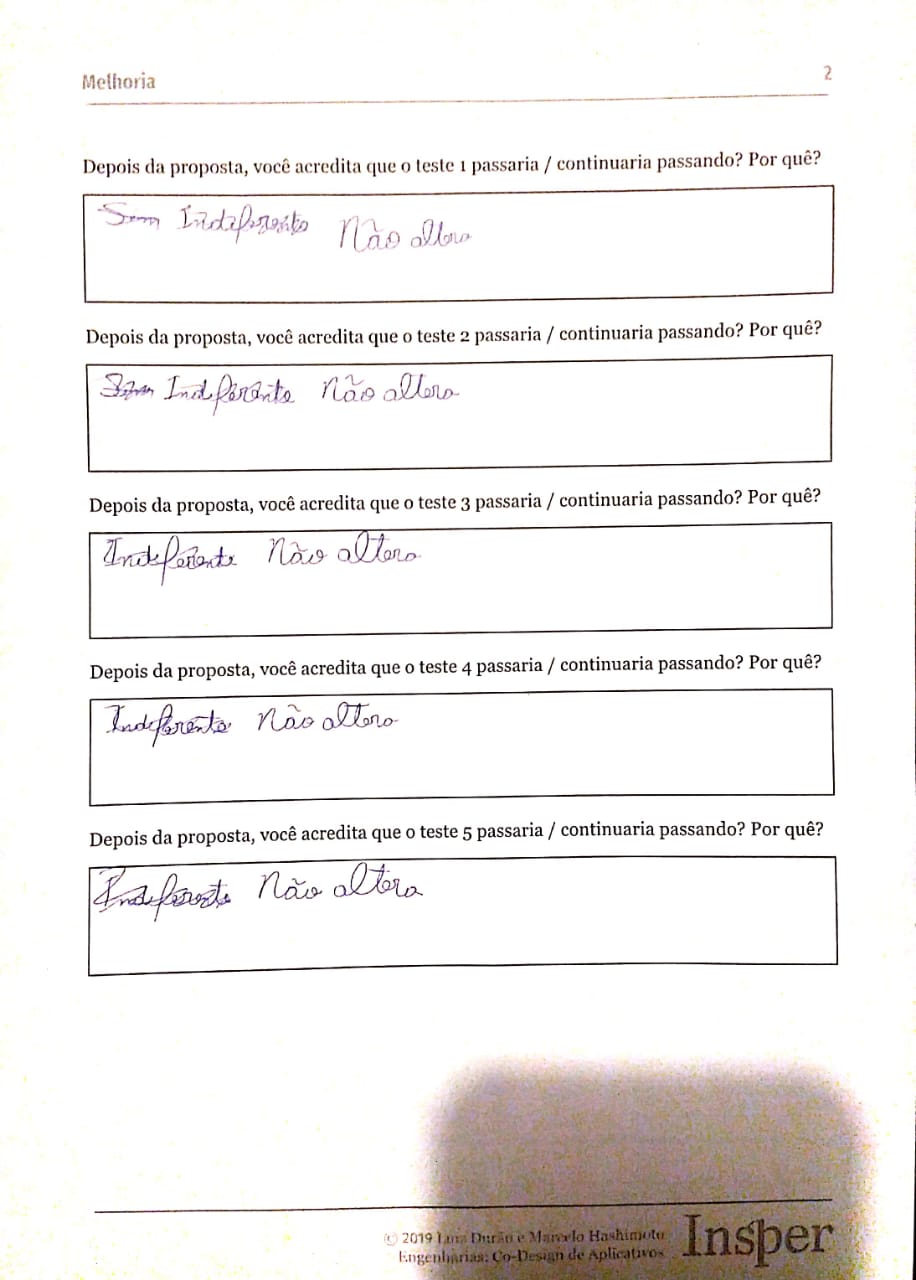 Melhoria 2
Depois da proposta, você acredita que o teste 1 passaria / continuaria passando? Por quê?
Indeferente Não altera
Depois da proposta, você acredita que o teste 2 passaria / continuaria passando? Por quê?
Indiferente Não altera
Depois da proposta, você acredita que o teste 3 passaria / continuaria passando? Por quê?
Indeferente Não altera
Depois da proposta, você acredita que o teste 4 passaria / continuaria passando? Por quê?
Indeferente Não altera
Depois da proposta, você acredita que o teste 5 passaria / continuaria passando? Por quê?
Indeferente Não altera
© 2019 Luis Durão e Marcelo Hashimoto
Engenharias: Co-Design de Aplicativos
Insper